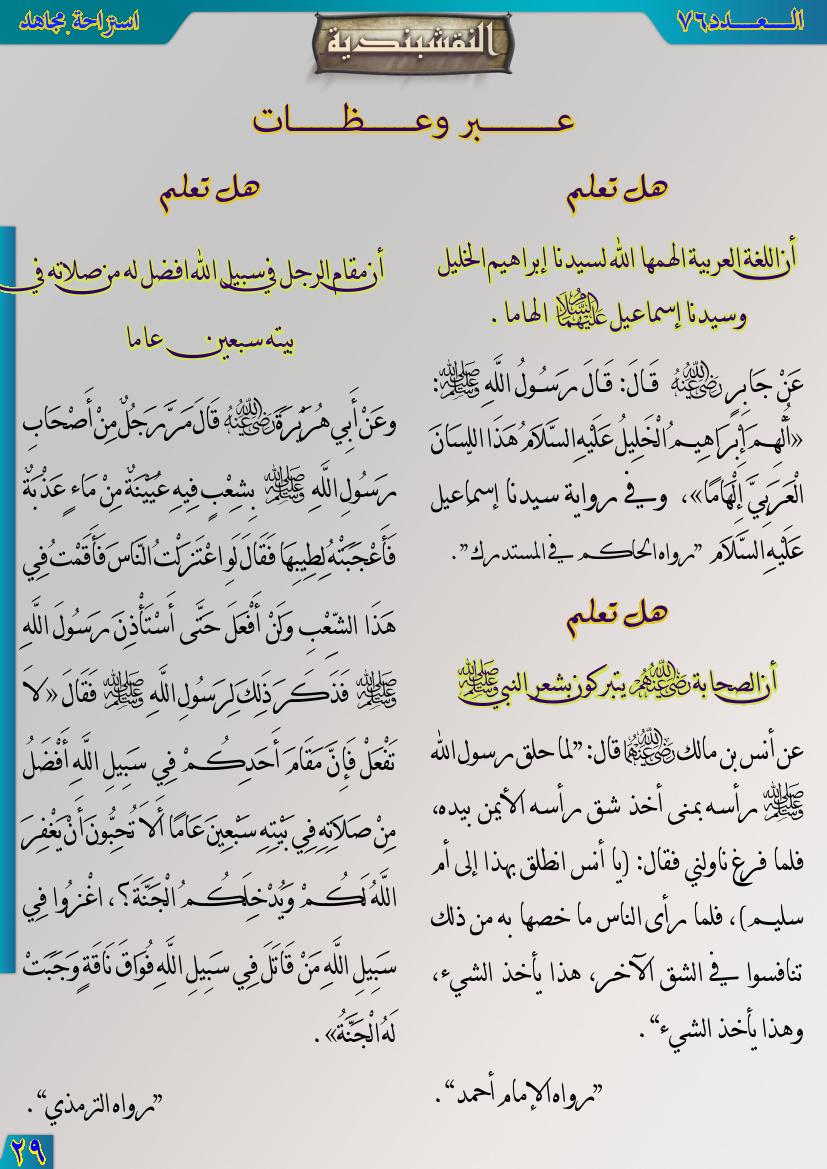 العدد ٧٦
النقشبندية
استراحة مجاهد
عبر وعظات
هل تعلم
أن اللغة العربية الهمها الله لسيدنا إبراهيم الخليل
وسيدنا إسماعيل عليهما السلام الهاما .
عَنْ جَابِرٍ رضي الله عنه قَالَ: قَالَ رَسُولُ اللَّهِ صلى الله عليه وسلم:
«أُلْهِمَ إِبْرَاهِيمُ الْخَلِيلُ عَلَيْهِ السَّلَامُ هَذَا اللِّسَانَ
الْعَرَبِيَّ إِلْهَامًا»، وفي رواية سيدنا إسماعيل
عَلَيْهِ السَّلَامُ ”رواه الحاكم في المستدرك”.
هل تعلم
أن الصحابة رضي الله عنهم يتبركون بشعر النبي صلى الله عليه وسلم
عن أنس بن مالك رضي الله عنهما قال: ”لما حلق رسول الله
صلى الله عليه وسلم رأسه بمنى أخذ شق رأسه الأيمن بيده،
فلما فرغ ناولني فقال: (يا أنس انطلق بهذا إلى أم
سليم)، فلما رأى الناس ما خصها به من ذلك
تنافسوا في الشق الآخر، هذا يأخذ الشيء،
وهذا يأخذ الشيء“ .
”رواه الإمام أحمد“ .
هل تعلم
أن مقام الرجل في سبيل الله افضل له من صلاته في
بيته سبعين عاما
وعَنْ أَبِي هُرَيْرَةَ رضي الله عنه قَالَ مَرَّ رَجُلٌ مِنْ أَصْحَابِ
رَسُولِ اللَّهِ صلى الله عليه وسلم بِشِعْبٍ فِيهِ عُيَيْنَةٌ مِنْ مَاءٍ عَذْبَةٌ
فَأَعْجَبَتْهُ لِطِيبِهَا فَقَالَ لَو اعْتَزَلْتُ النَّاسَ فَأَقَمْتُ فِي
هَذَا الشِّعْبِ وَلَنْ أَفْعَلَ حَتَّى أَسْتَأْذِنَ رَسُولَ اللَّهِ
صلى الله عليه وسلم فَذَكَرَ ذَلِكَ لِرَسُولِ اللَّهِ صلى الله عليه وسلم فَقَالَ «لاَ
تَفْعَلْ فَإِنَّ مَقَامَ أَحَدِكُمْ فِي سَبِيلِ اللَّهِ أَفْضَلُ
مِنْ صَلاَتِهِ فِي بَيْتِهِ سَبْعِينَ عَامًا أَلاَ تُحِبُّونَ أَنْ يَغْفِرَ
اللَّهُ لَكُمْ وَيُدْخِلَكُمُ الْجَنَّةَ؟، اغْزُوا فِي
سَبِيلِ اللَّهِ مَنْ قَاتَلَ فِي سَبِيلِ اللَّهِ فُوَاقَ نَاقَةٍ وَجَبَتْ
لَهُ الْجَنَّةُ» .
”رواه الترمذي“ .
٢٩